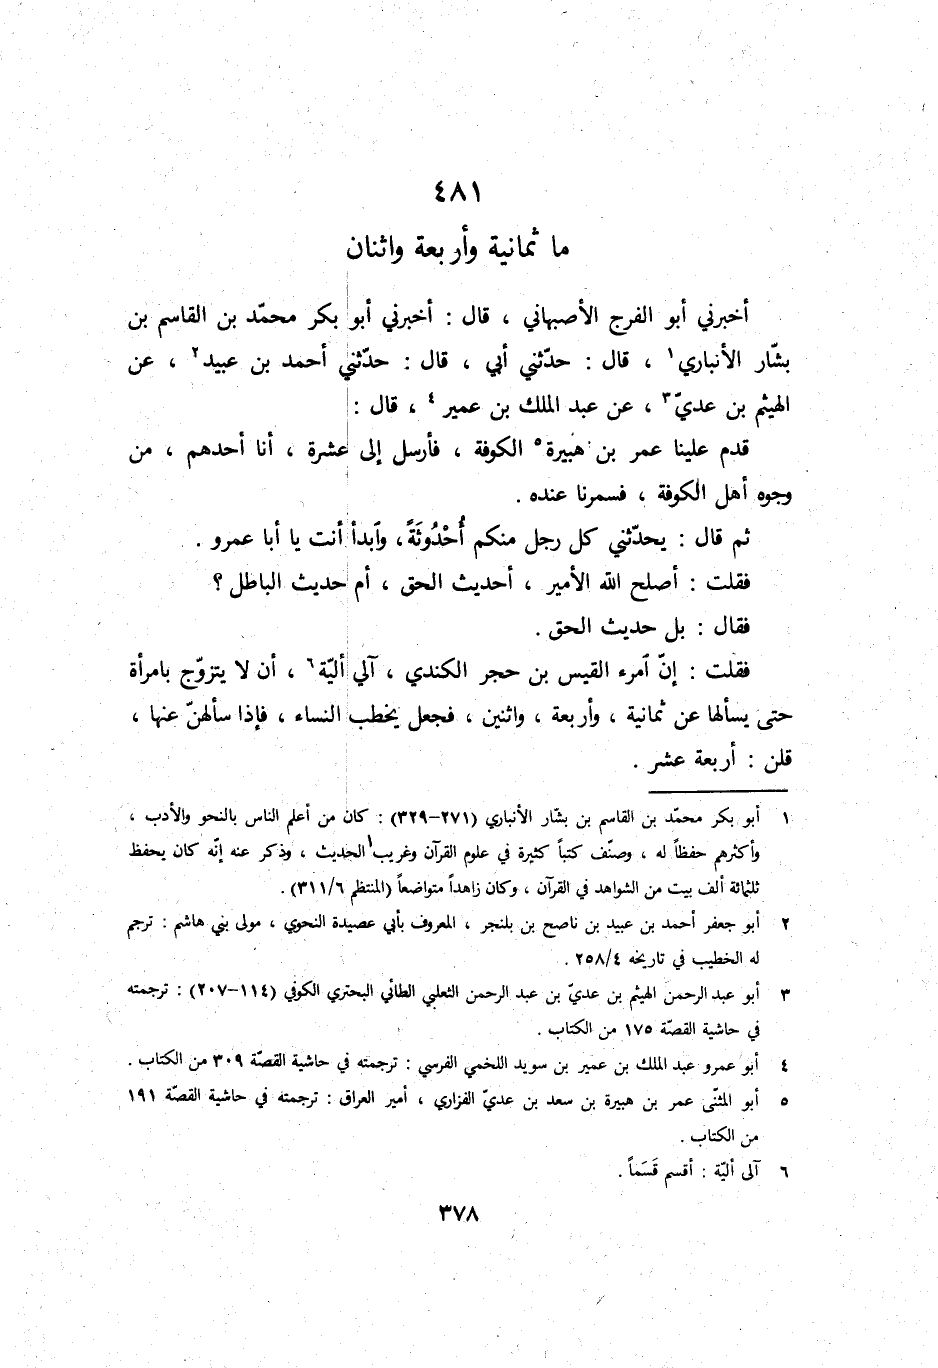 ٤٨١
ما ثمانية وأربعة واثنان
أخبرني أبو الفرج الأصبهاني ، قال : أخبرني أبو بكر محمّد بن القاسم بن
بشّار الأنباري١ ، قال : حدّثني أبي ، قال : حدّثني أحمد بن عبيد٢ ، عن
الهيثم بن عديّ٣ ، عن عبد الملك بن عمير ٤ ، قال :
قدم علينا عمر بن هبيرة٥ الكوفة ، فأرسل إلى عشرة ، أنا أحدهم ، من
وجوه أهل الكوفة ، فسمرنا عنده .
ثم قال : يحدّثني كل رجل منكم أُحْدُوثَةً ، وٱبدأ أنت يا أبا عمرو .
فقلت : أصلح الله الأمير ، أحديث الحق ، أم حديث الباطل ؟
فقال : بل حديث الحق .
فقلت : إنّ ٱمرء القيس بن حجر الكندي ، آلي أليّة٦ ، أن لا يتزوّج بامرأة
حتى يسألها عن ثمانية ، وأربعة ، واثنين ، فجعل يخطب النساء ، فإذا سألهنّ عنها ،
قلن : أربعة عشر .
١ أبو بكر محمّد بن القاسم بن بشّار الأنباري (٢٧١–٣٢٩) : كان من أعلم الناس بالنحو والأدب ،
وأكثرهم حفظاً له ، وصنّف كتباً كثيرة في علوم القرآن وغريب الحديث ، وذكر عنه إنّه كان يحفظ
ثلثمائة ألف بيت من الشواهد في القرآن ، وكان زاهداً متواضعاً (المنتظم ٣١١/٦) .
٢ أبو جعفر أحمد بن عبيد بن ناصح بن بلنجر ، المعروف بأبي عصيدة النحوي ، مولى بني هاشم : ترجم
له الخطيب في تاريخه ٢٥٨/٤ .
٣ أبو عبد الرحمن الهيثم بن عديّ بن عبد الرحمن الثعلبي الطائي البحتري الكوفي (١١٤–٢٠٧) : ترجمته
في حاشية القصّة ١٧٥ من الكتاب .
٤ أبو عمرو عبد الملك بن عمير بن سويد اللخمي الفرسي : ترجمته في حاشية القصّة ٣٠٩ من الكتاب .
٥ أبو المثنّى عمر بن هبيرة بن سعد بن عديّ الفزاري ، أمير العراق : ترجمته في حاشية القصّة ١٩١
من الكتاب .
٦ آلى أليّة : أقسم قَسَماً .
٣٧٨